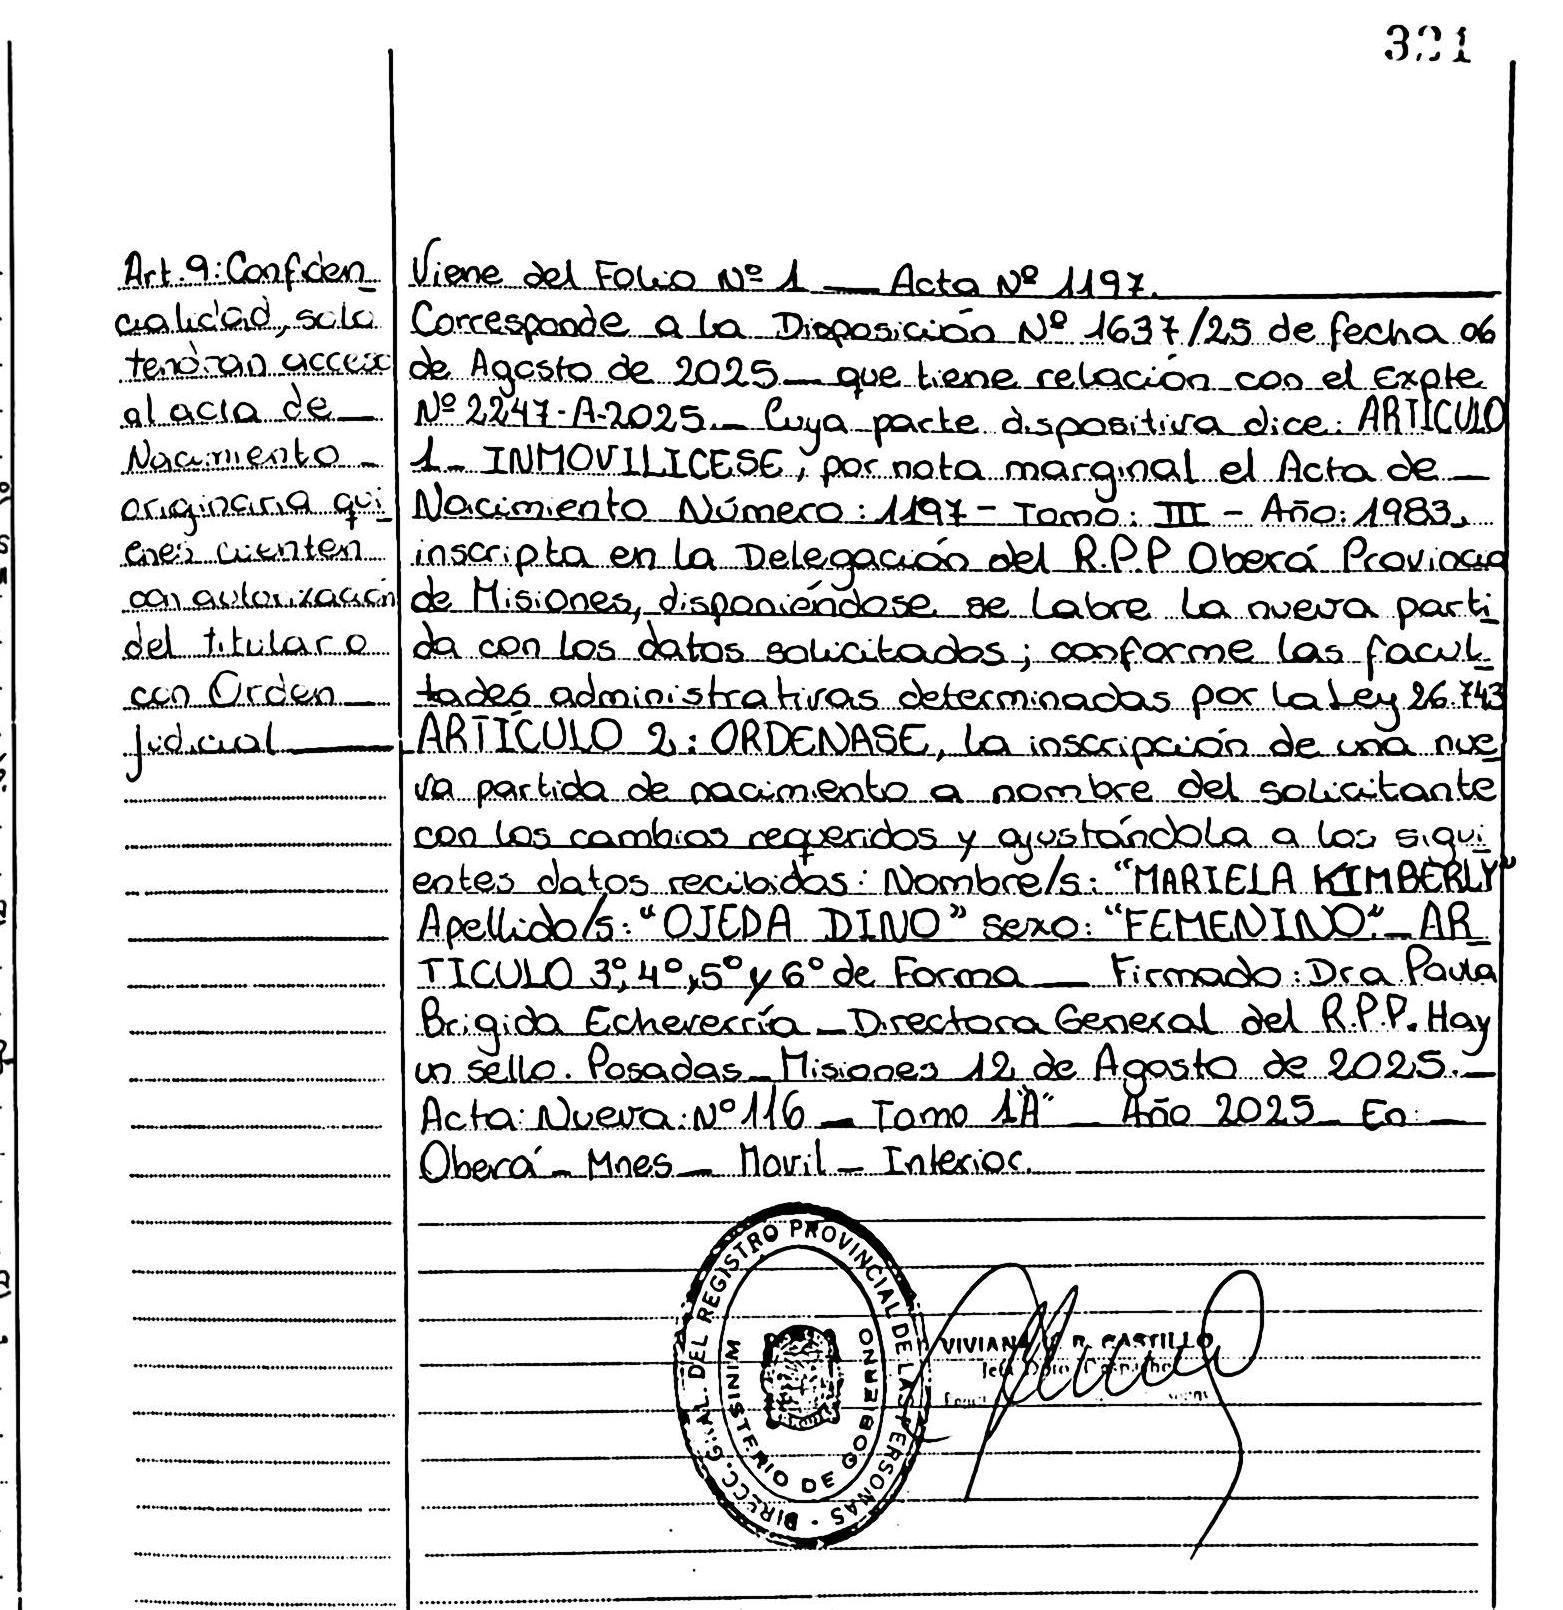 321
Art.9: Confiden_
cialidad, solo
tendran acceso
al acta de_
Nacimiento -
originaria qui_
enes cuenten
con autorización
del titular o
con Orden_
judicial_
Viene del Folio Nº 1 __ Acta Nº 1197.
Corresponde a la Disposición Nº 1637/25 de fecha 06
de Agosto de 2025_ que tiene relación con el Expte
Nº 2247-A-2025._ Cuya parte dispositiva dice: ARTICULO
1_ INMOVILICESE, por nota marginal el Acta de_
Nacimiento Número: 1197 - Tomo: III - Año: 1983,
inscripta en la Delegación del R.P.P Oberá Provincia
de Misiones, disponiéndose se labre la nueva parti_
da con los datos solicitados; conforme las facul_
tades administrativas determinadas por la Ley 26.743
ARTÍCULO 2: ORDENASE, la inscripción de una nue_
va partida de nacimiento a nombre del solicitante
con los cambios requeridos y ajustándola a los sigui_
entes datos recibidos: Nombre/s: "MARIELA KIMBERLY"
Apellido/s: "OJEDA DINO" sexo: "FEMENINO"._ AR_
TICULO 3º, 4º, 5º y 6º de Forma __ Firmado: Dra Paula
Brigida Echeverría _ Directora General del R.P.P. Hay
un sello. Posadas_ Misiones 12 de Agosto de 2025._
Acta: Nueva: Nº 116 _ Tomo 1"A" _ Año 2025_ En: _
Oberá _ Mnes _ Movil _ Interior.
DIRECC. GRAL. DEL REGISTRO PROVINCIAL DE LAS PERSONAS -
MINISTERIO DE GOBIERNO
VIVIANA R. CASTILLO